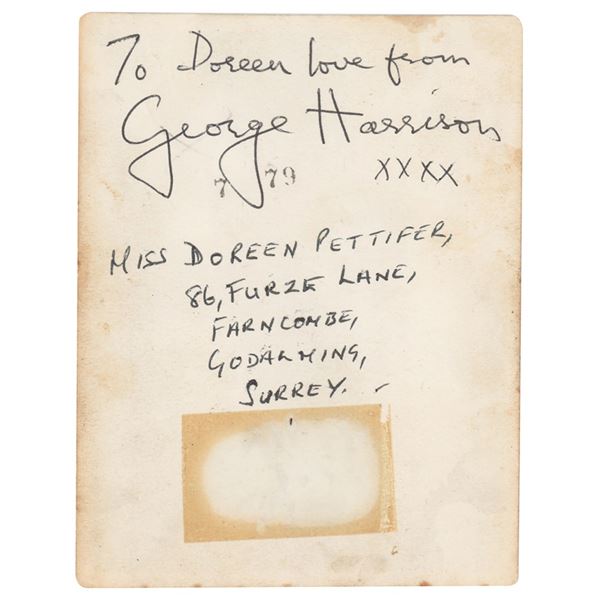 To Doreen love from
George Harrison
7 79 xxxx
MISS DOREEN PETTIFER,
86, FURZE LANE,
FARNCOMBE,
GODALMING,
SURREY.